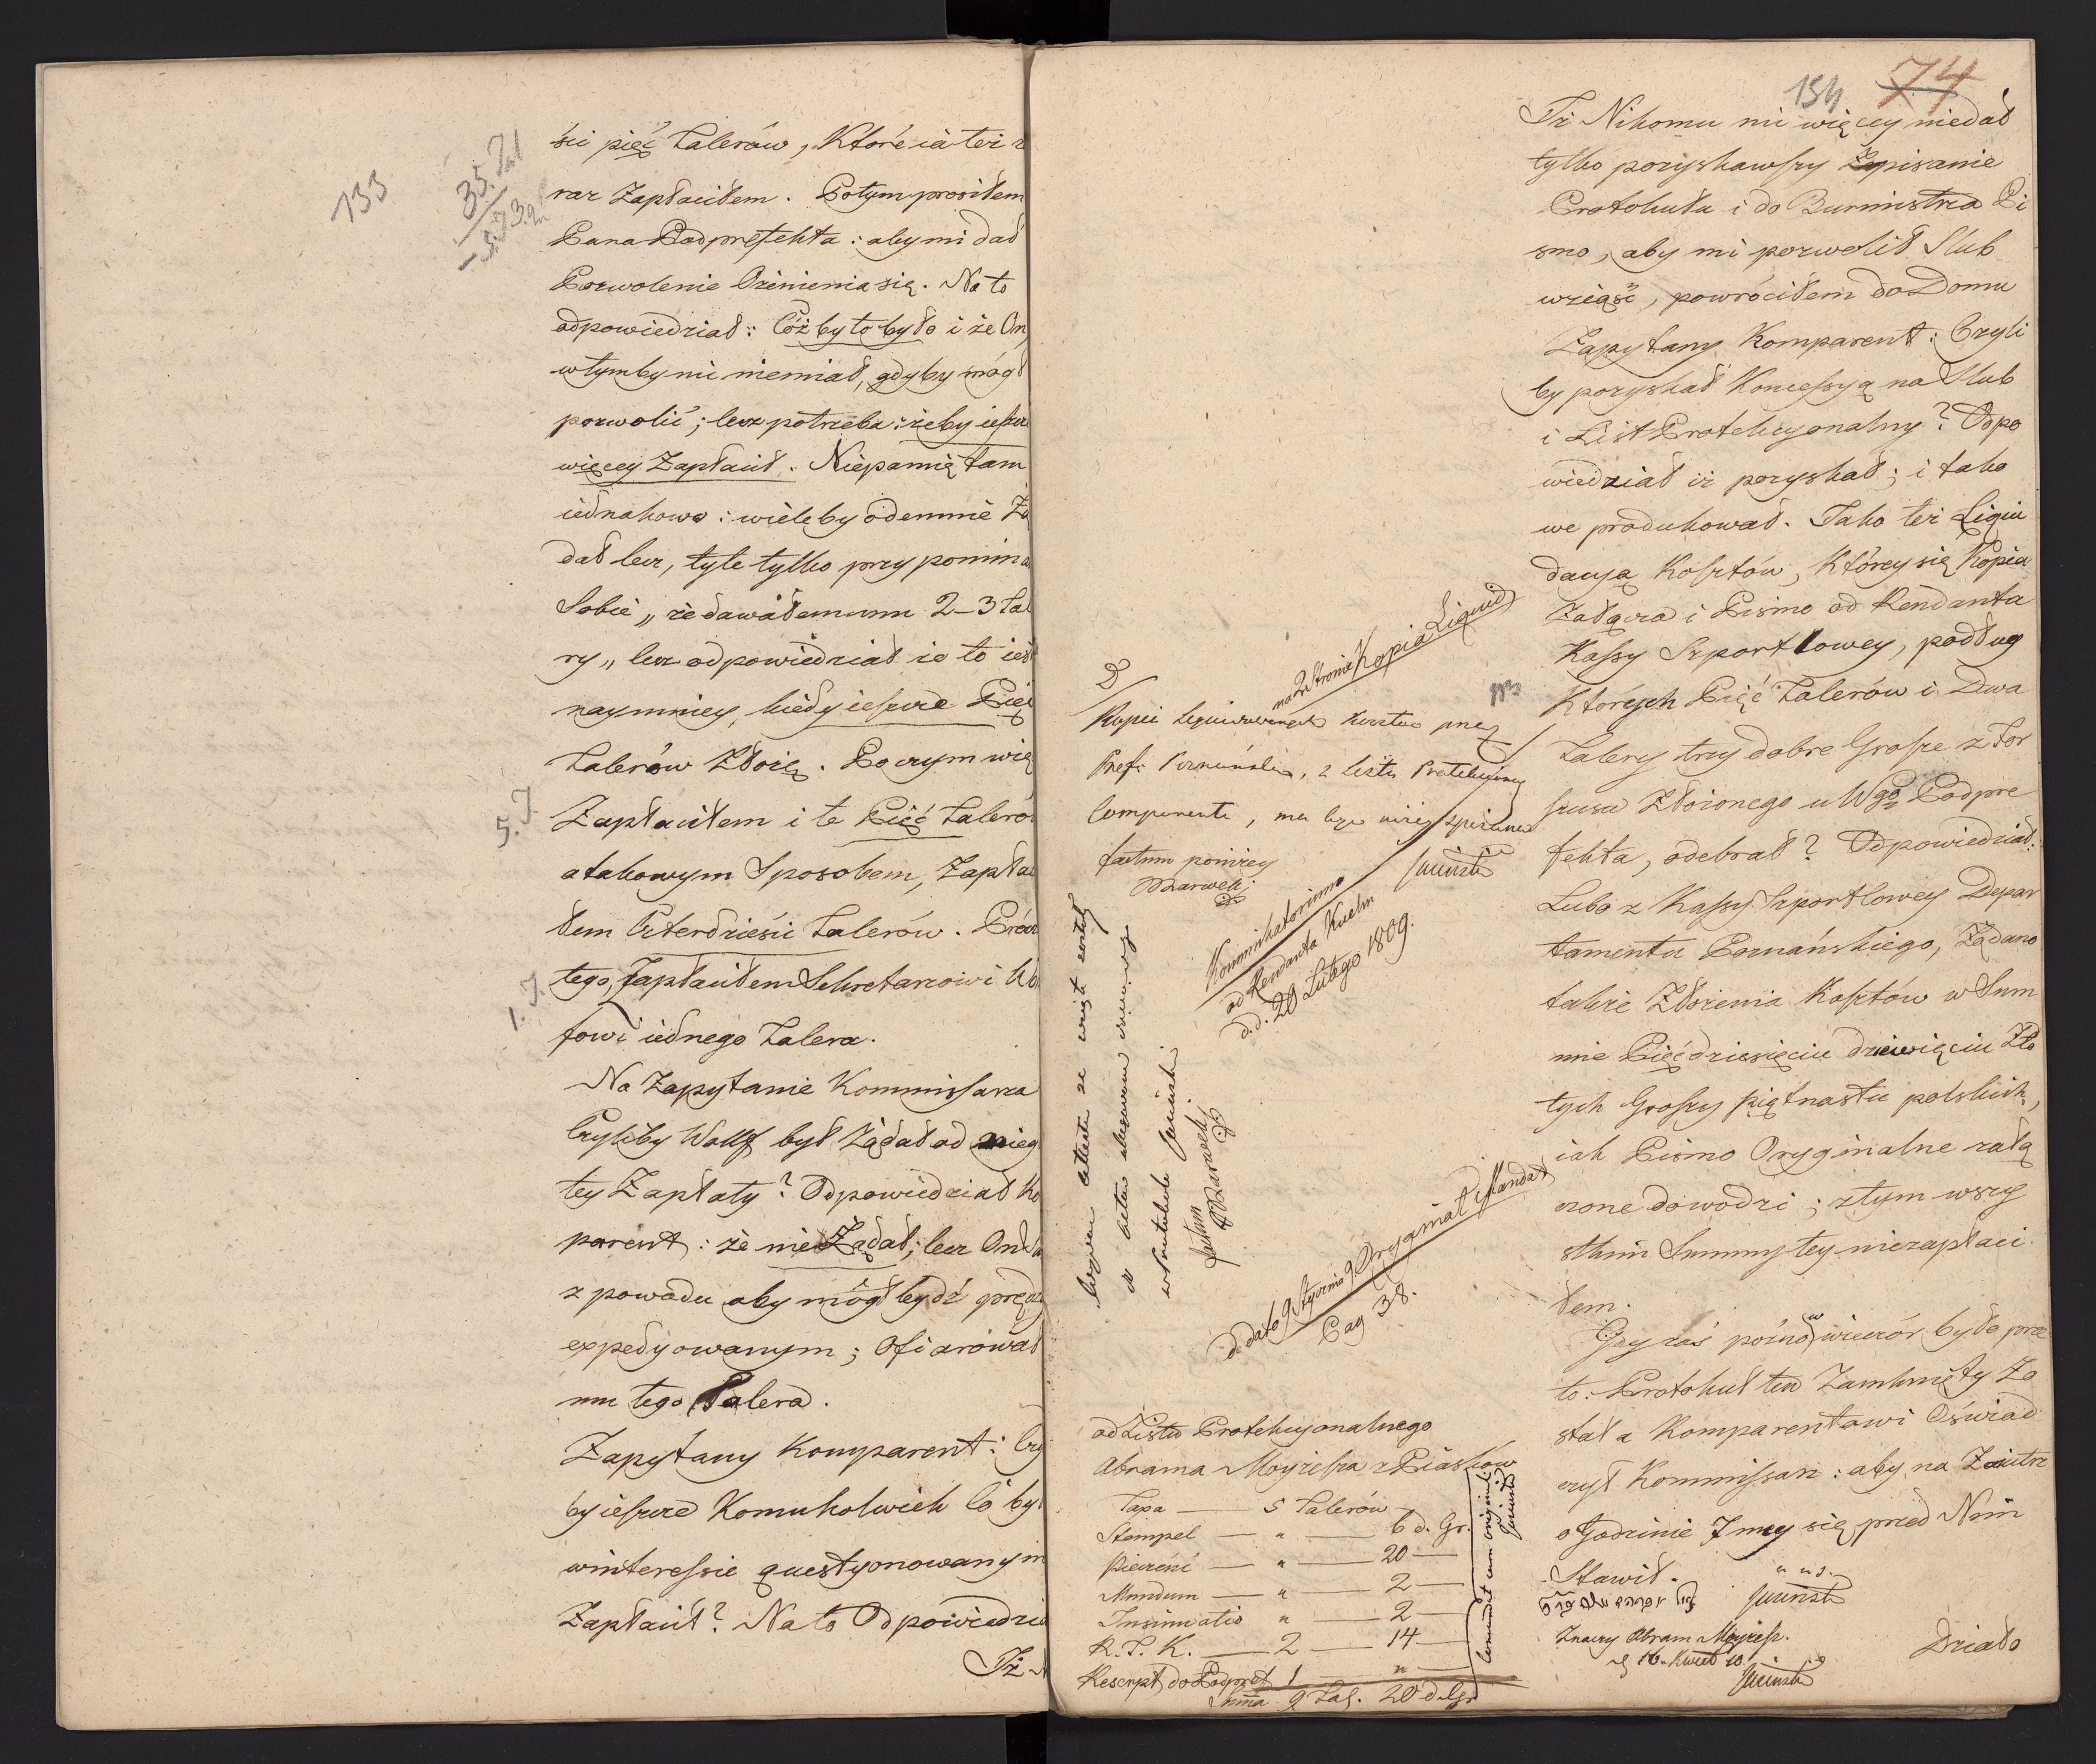 133
35. Tal
5. 73. gl
ści pięć Talerów, Które ia też
raz Zapłaciłem. Potym prosiłem
Pana Podprefekta: aby mi dał
Pozwolenie Ożenienia się. Na to
odpowiedział: Cóż by to było i że On
w tym by nic niemiał, gdyby mógł
pozwolić; lecz potrzeba: żeby ieszcze
więcey Zapłacił. Niepamiętam
iednakowo: wiele by odemnie Żą
dał lecz, tyle tylko przypomina
Sobie „ że dawałem mu 2–3 Tal
ry „ lecz odpowiedział że to iest
naymniey, kiedy ieszcze Pięć
Talerów Złożę. Poczym więc
5. T.
Zapłaciłem i te Pięć Taleró
a takowym Sposobem, Zapłac
łem Czterdzieści Talerów. Prócz
tego, Zapłaciłem Sekretarzowi
1. T.
fowi iednego Talera.
Na Zapytanie Kommissarza
Czyliby Wolff był Żądał od nieg
tey Zapłaty? Odpowiedział Ko
parent: że nie Żądał; lecz On
z powodu aby mógł bydź prędz
expedyowanym; Ofiarował
mu tego Talera.
Zapytany Komparent: Czy
by ieszcze Komukolwiek Co by
w interessie questyonowanym
Zapłacił? Na to Odpowiedzia
Iż
154 74
Iż Nikomu nic więcey niedał
tylko pozyskawszy Zpisanie
Protokułu i do Burmistrza Pi
smo, aby mi pozwolił Slub
wziąść, powróciłem do Domu
Zapytany Komparent: Czyli
by pozyskał Koncessyą na Slub
i List Protekcyonalny? Odpo
wiedział iż pozyskał; i tako
we produkował. Jako też Liqui
dacyą Kosztów, Którey się Kopia
Załącza i Pismo od Rendanta
Kassy Szportlowey, podług
Których Pięć Talerów i Dwa
Talery trzy dobre Grosze z For
szusu Złożonego u Wgo Podpre
fekta, odebrał? Odpowiedział:
Lubo z Kassy Szportlowey Depar
tamentu Poznańskiego, Żądano
także Złożenia Kosztów w Sum
mie Pięćdziesięciu dziewięciu Zło
tych Groszy piętnastu polskich,
iak Pismo Oryginalne załą
czone dowodzi; z tym wszy
stkim Summy tey niezapłaci
łem.
Gdy zaś poźno w wieczór było prze
to. Protokuł ten Zamknięty Zo
stał a Komparentowi Oświad
czył Kommissarz: aby na Zaiutrz
o Godzinie 7mey się przed Nim
Stawił.
Znaczy Abram Moyzesz.
Działo
na 2r Stronie Kopia Liquid
D
Kopii
Pref: Poznańskie, z listu Protekcyiney
Comparenta, ma bydź niżey spisana
factum poniżey
Kommikatorium
od Rendanta Kuelm
d.d. 20 Lutego 1809.
factum
de dato 9 Stycznia 9 Orygınał Mandat
Pag 38.
od Listu Protekcyonalnego
Abrama Moyzesza z Piasków
Taxa — 5 Talerów —
Stempel — " — 6 d. Gr.
Pieczęć — " — 20 —
Mundum — " — 2 —
Insinuatio " — 2 —
R. T. K. — 2 — 14 —
Rescript do Podpref 1 — " —
Suma 9 Tal. 20 d. Gr